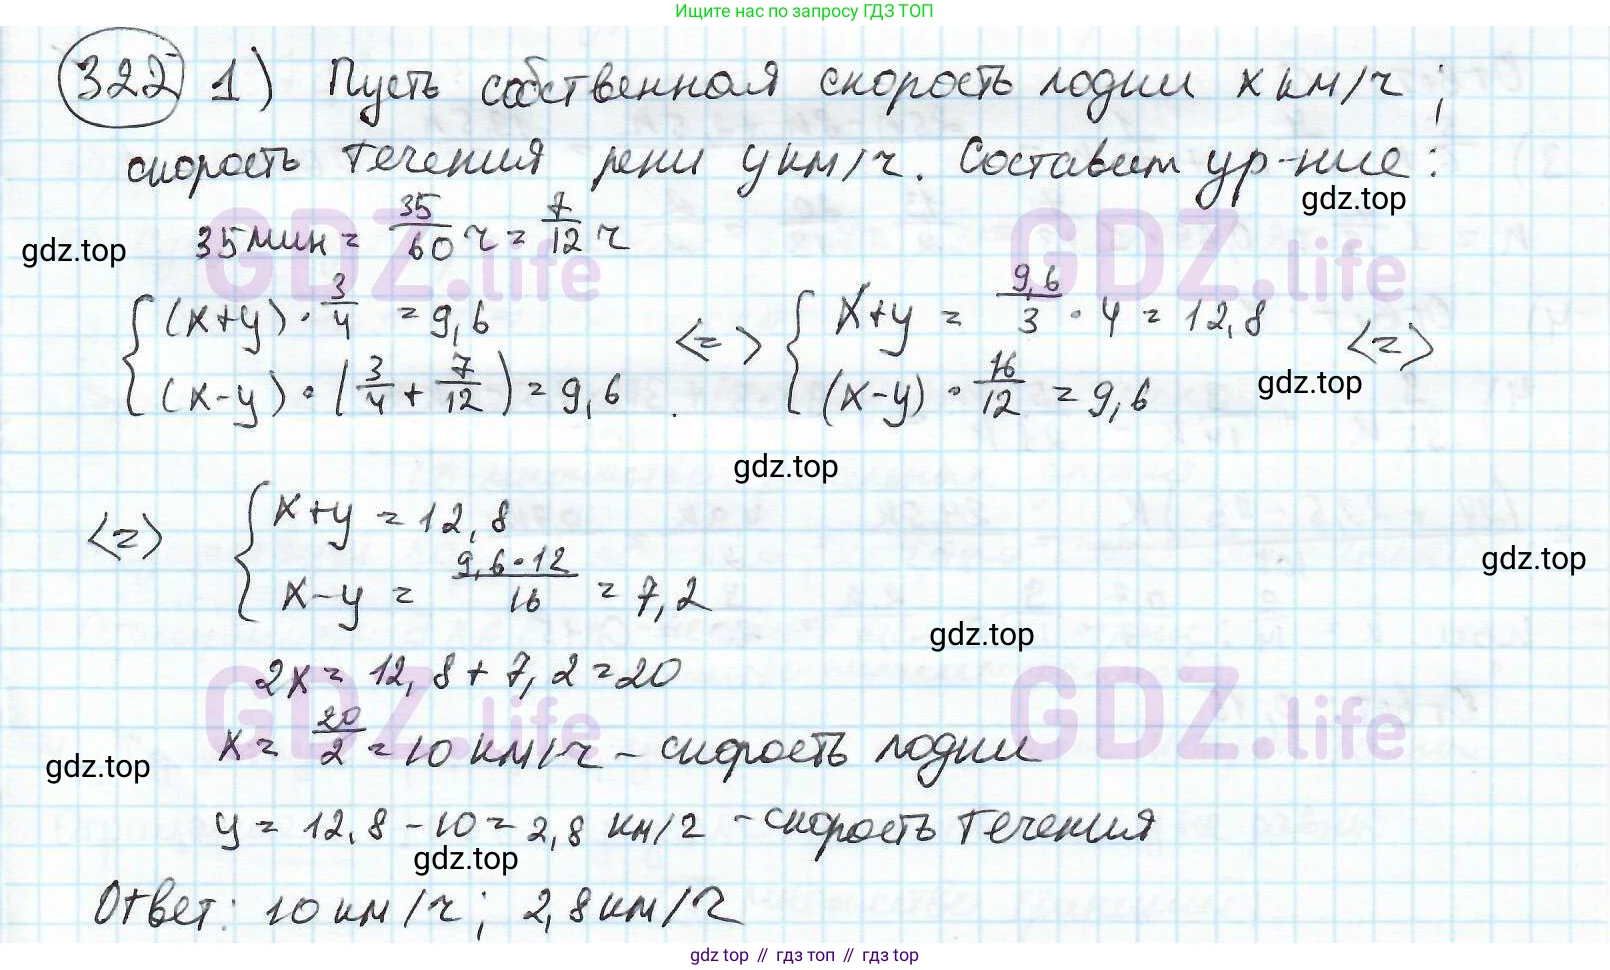 Ищите нас по запросу ГДЗ ТОП
322 1) Пусть собственная скорость лодки x км/ч;
скорость течения реки y км/ч. Составим ур-ние:
gdz.top
35 мин = 35/60 ч = 7/12 ч
gdz.top
GDZ.life GDZ.life
{ (x+y) · 3/4 = 9,6 <=> { x+y = 9,6/3 · 4 = 12,8 <=>
(x-y) · (3/4 + 7/12) = 9,6. (x-y) · 16/12 = 9,6
gdz.top
gdz.top
<=> { x+y = 12,8
x-y = 9,6·12/16 = 7,2
gdz.top
gdz.top
2x = 12,8 + 7,2 = 20
GDZ.life GDZ.life
x = 20/2 = 10 км/ч - скорость лодки
gdz.top
y = 12,8 - 10 = 2,8 км/ч - скорость течения
gdz.top
Ответ: 10 км/ч; 2,8 км/ч
gdz.top // гдз топ // gdz top